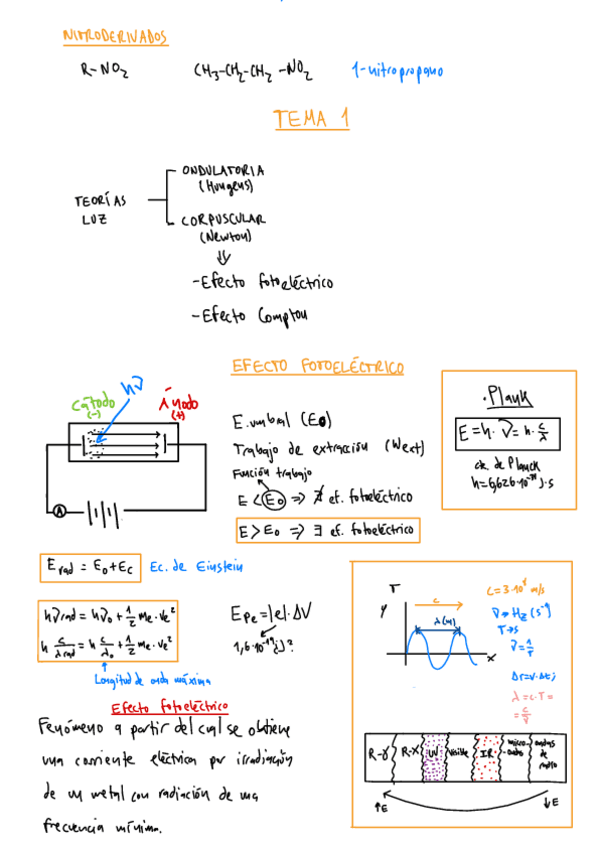 NITRODERIVADOS
R-NO₂ CH₃-CH₂-CH₂-NO₂ 1-nitropropano
TEMA 1
TEORÍAS LUZ
ONDULATORIA
(Huygens)
CORPUSCULAR
(Newton)
⇓
-Efecto fotoeléctrico
-Efecto Compton
EFECTO FOTOELÉCTRICO
hν
Cátodo
(-)
Ánodo
(+)
A
E.umbral (E₀)
Trabajo de extracción (Wext)
Función trabajo
E < E₀ ⇒ ∄ ef. fotoeléctrico
E > E₀ ⇒ ∃ ef. fotoeléctrico
·Plank
E = h·ν = h·c/λ
cte. de Planck
h = 6,626·10⁻³⁴ J·s
Erad = E₀ + Ec Ec. de Einstein
hνrad = hν₀ + 1/2 me·ve²
h c/λrad = h c/λ₀ + 1/2 me·ve²
Longitud de onda máxima
Epe = |e|·ΔV
1,6·10⁻¹⁹ J?
Efecto fotoeléctrico
Fenómeno a partir del cual se obtiene
una corriente eléctrica por irradiación
de un metal con radiación de una
frecuencia mínima.
T
c
y
λ(m)
x
ν → Hz (s⁻¹)
T → s
ν = 1/T
Δr = v·Δt;
λ = c·T =
= c/ν
R-γ
R-X
UV
visible
IR
micro-
ondas
ondas
de
radio
↑E
↓E